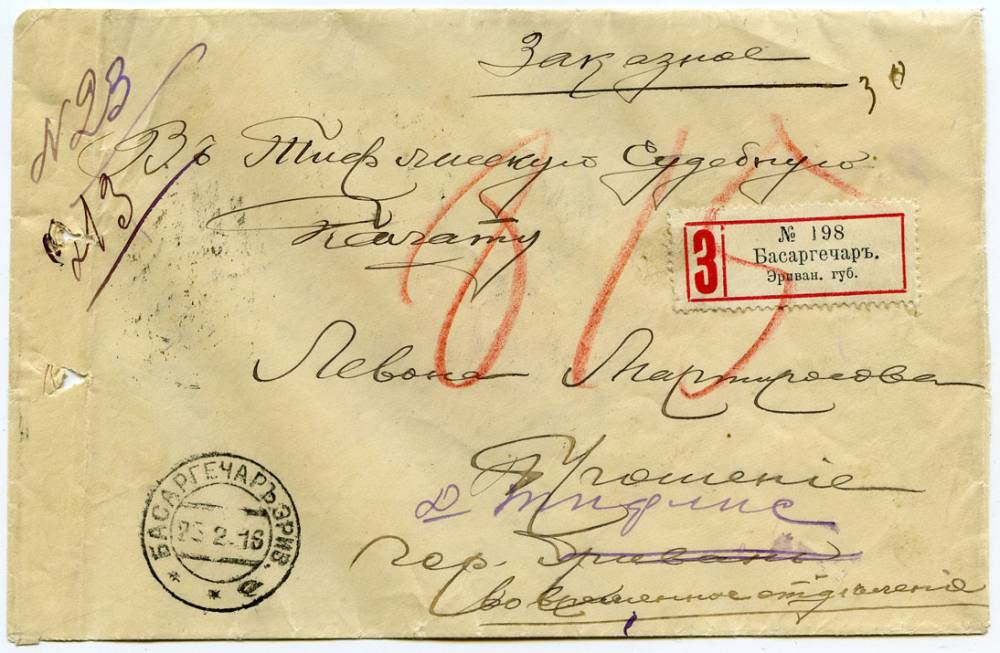 Заказное
30
N 23
213
Въ Тифлисскую Судебную
Палату
815
З
№ 198
Басаргечаръ.
Эриван. губ.
Левона Мартиросова
Прошеніе
Тифлис
гор. Эривань
во временное отдѣленіе
БАСАРГЕЧАРЪ ЭРИВ.
23.2.16
а